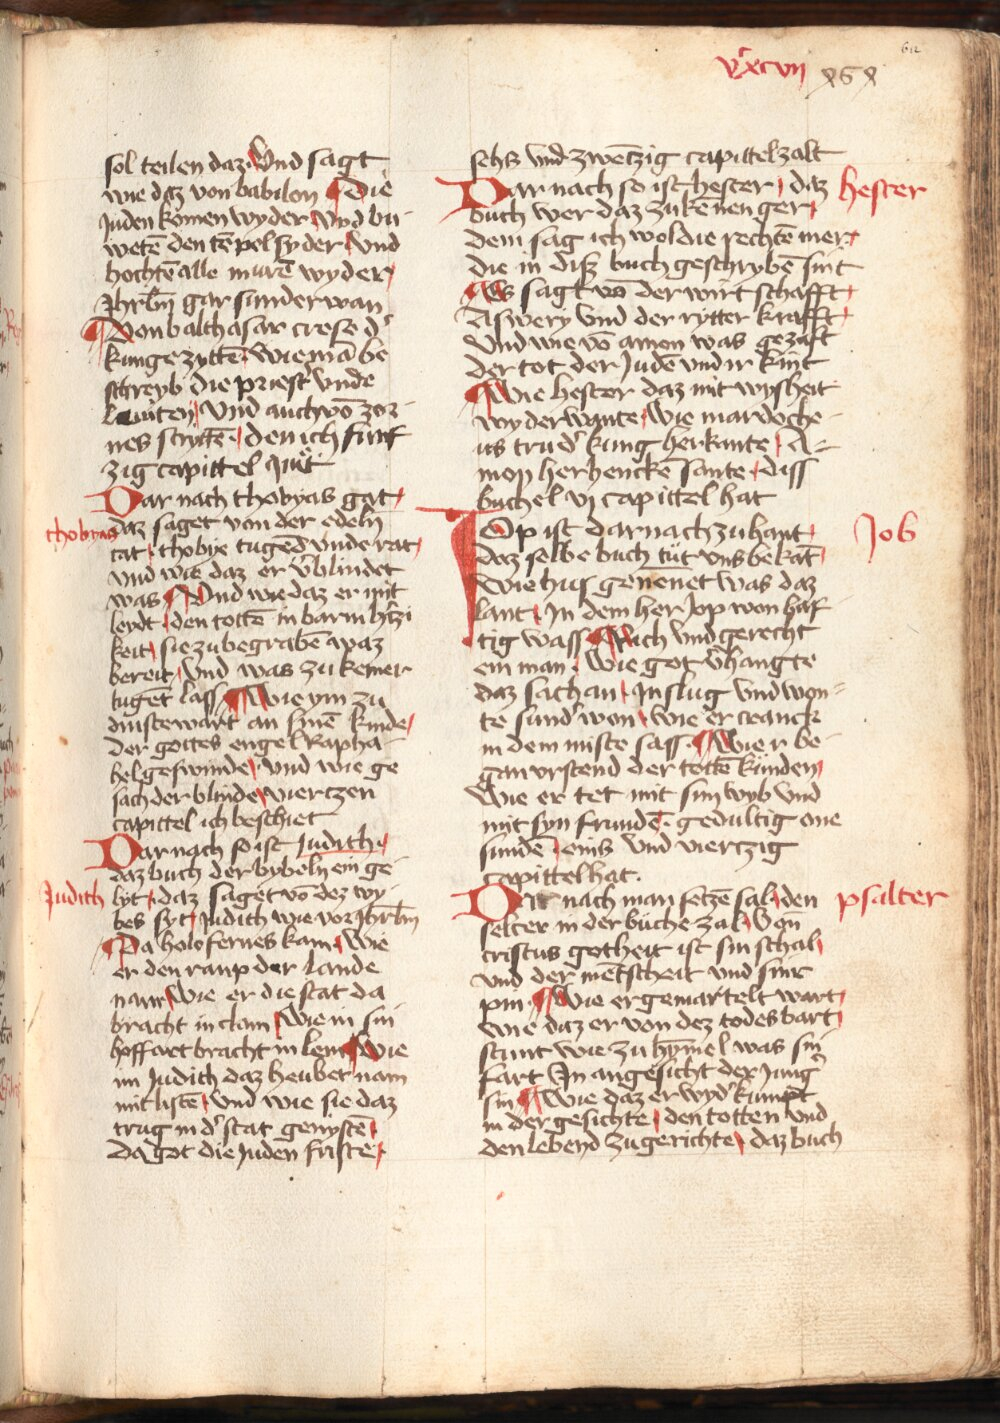 612
vͨxcvii
sol teilen daz Vnd sagt
wie daz von babilon Die
Juden komen wyder Vnd bu
wetē den tēpel syder Vnd
hochtē alle murē wyder
Jhrlm̄ gar sunder wan
Von balthasar crese dˢ
kunge zyttē wie mā be
schreyb die priestˢ vnde
leuiten Vnd auch vō zor
nes stryttē den ich funf
zig capittel quit
Dar nach thobyas gat
thobyas
daz saget von der edeln
tat thobye tugēd vnde rat
vnd wie daz er ṽblindet
was Vnd wie daz er mit
leydt den tottē in barmhˢtzi
keit sie zu begrabē waz
bereit Vnd was zu keiner
tugēt lass Wie ym zu
dinste wart an sinē kinde
der gottes engel Rapha-
hel geswinde Vnd wie ge
sach der blinde viertzen
capittel ich beschiet
Dar nach so ist Judith
daz buch der bybeln ein ge
Judith
lyt daz saget vō dez wy-
bes syt Judith wie vor Jhrlm̄
Da holofernes kam Wie
er den raup der lande
nam Wie er die stat da
bracht in clam Wie in sin
hoffart bracht in lem Wie
im Judith daz heubet nam
mit listē Vnd wie sie daz
trug in dˢ stat genystē
Da got die Juden friste
sehs vnd zwētzig capittel zalt
Dar nach so ist hester daz
hester
buch wer daz zu kēnen ger
dem sag ich wol die rechtē mer
die in disz buch geschrybē sint
Es sagt vō der wirtschafft
Aswery vnd der rytter krafft
Vnd wie vō amon was gezalt
der tot der Judē vnd ir kint
Wie hester daz mit wysheit
wyder wante Wie mardoche-
us trudˢ kung herkante A-
mon herhenckē sante diss
buchel vj capittel hat
Jop ist dar nach zu hant
Job
daz selbe buch tůt vns bekāt
Wie hus genēnet was daz
lant In dem her Jop won haf
tig wass Rich vnd gerecht
ein man Wie got ṽhangte
daz sachan In slug vnd won-
te sundˢ won wie er cranck
in dem miste sass Wie er be-
gan vrstend der tottē kunden
Wie er tet mit sim wyb vnd
mit syn frundē gedultig one
sundē eins vnd viertzig
capittel hat.
Dar nach man setzē sal den
psalter
selter in der buche zal Von
cristus gotheit ist sin schal
vnd der mētscheit vnd sinr
pin Wie er gemartelt wart
wie daz er von dez todes bart
stunt wie zu hȳmel was sin
fart In angesicht der Jung
sin Wie daz er wydˢ kumpt
in der gesichte den totten vnd
den lebend zu gerichte daz buch